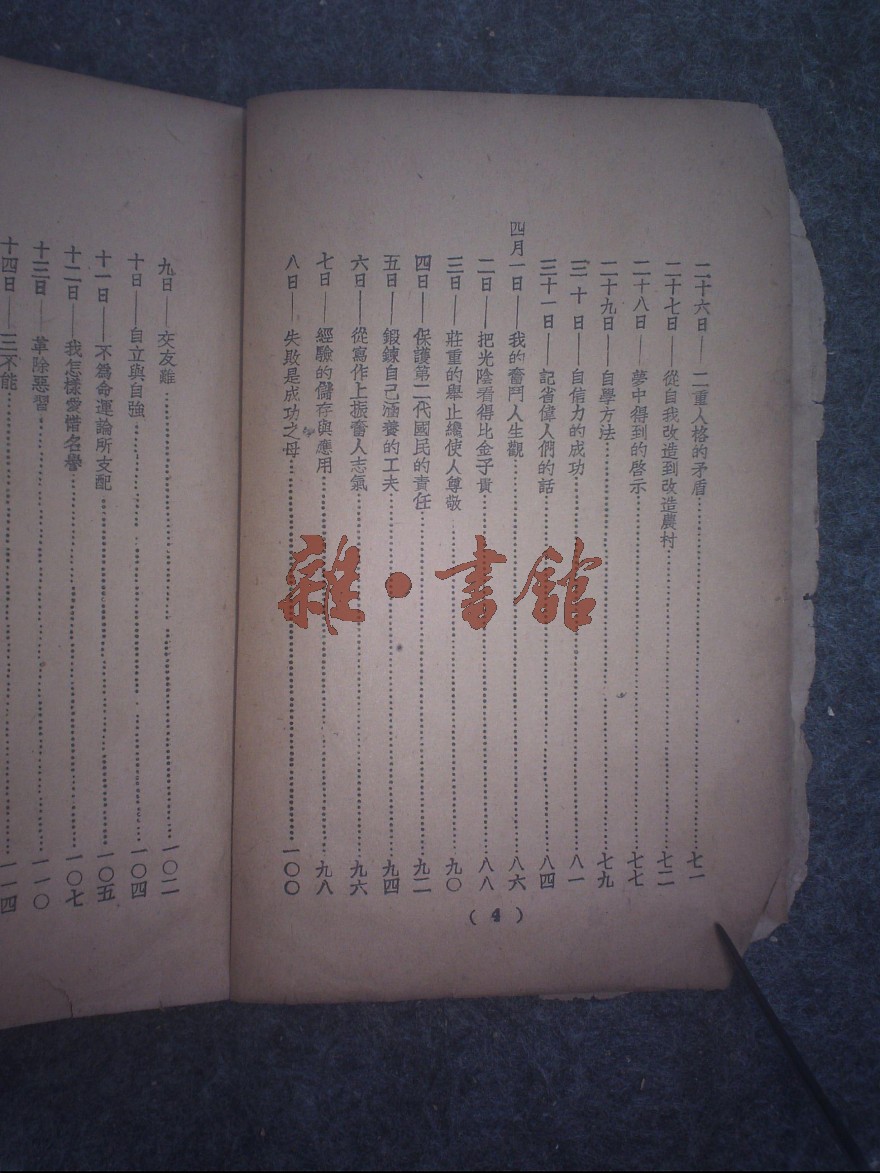 二十六日——二重人格的矛盾……七一
二十七日——從自我改造到改造農村……七二
二十八日——夢中得到的啓示……七七
二十九日——自學方法……七九
三十日——自信力的成功……八一
三十一日——記省偉人們的話……八四
四月一日——我的奮鬥人生觀……八六
二日——把光陰看得比金子貴……八八
三日——莊重的舉止纔使人尊敬……九〇
四日——保護第二代國民的責任……九二
五日——鍛鍊自己涵養的工夫……九四
六日——從寫作上振奮人志氣……九六
七日——經驗的儲存與應用……九八
八日——失敗是成功之母……一〇〇
(4)
九日——交友難……一〇二
十日——自立與自強……一〇四
十一日——不爲命運論所支配……一〇五
十二日——我怎樣愛惜名譽……一〇七
十三日——革除惡習……一一〇
十四日——三不能……一一四
雜·書館